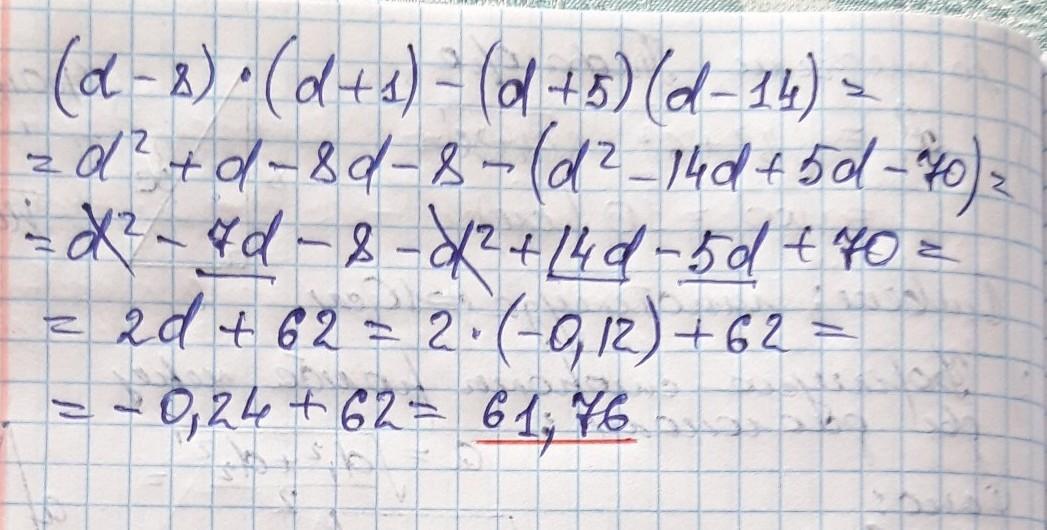 (d-8)·(d+1)-(d+5)(d-14)=
=d²+d-8d-8-(d²-14d+5d-70)=
=d²-7d-8-d²+14d-5d+70=
=2d+62=2·(-0,12)+62=
=-0,24+62=61,76